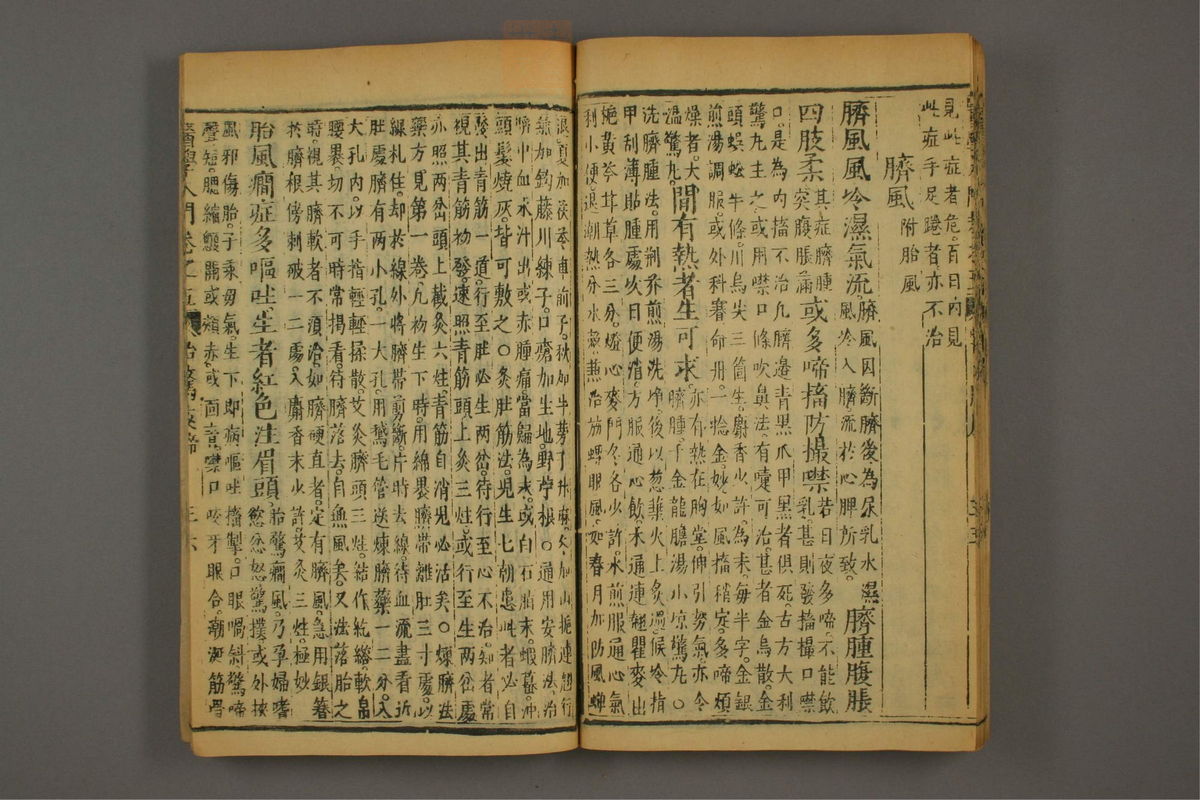 見此症者危百日內見
此症手足踡者亦不治
臍風 附胎風
臍風風冷濕氣流臍風因斷臍後為尿乳水濕風冷入臍流於心脾所致臍腫腹脹
四肢柔其症臍腫突腹脹滿或多啼搐防撮噤若日夜多啼不能飲乳甚則發搐撮口噤
口是為內搐不治凡臍邊青黑爪甲黑者俱死古方大利
驚丸主之或用噤口條吹鼻法有嚏可治甚者金烏散金
頭蜈蚣半條川烏尖三箇生麝香少許為末每半字金銀
煎湯調服或外科壽命丹一捻金妙如風搐稍定多啼煩
燥者大溫驚丸間有熱者生可求亦有熱在胸堂伸引努氣亦令臍腫千金龍膽湯小凉驚丸○
洗臍腫法用荊芥煎湯洗淨後以葱葉火上炙過候冷指
甲刮薄貼腫處次日便消方服通心飲木通連翹瞿麥出
梔黃芩甘草各三分燈心麥門冬各少許水煎服通心氣
利小便退潮熱分水穀兼治旋螺眼風如春月加防風蟬
退夏加茯苓車前子秋加牛蒡子升麻冬加山梔連翹行
氣加鈎藤川練子口瘡加生地野苧根○通用安臍法治
臍中血水汁出或赤腫痛當歸為末或白石脂末蝦蟇油
頭髮燒灰皆可敷之○灸肚筋法兒生七朝患此者必自
發出青筋一道行至肚必生两岔待行至心不治知者常
視其青筋初發速照青筋頭上灸三炷或行至生两岔處
亦照两岔頭上截灸六炷青筋自消兒必活矣○煉臍法
藥方見第一卷凡初生下時用綿裹臍帶離肚三寸處以
線札住却於線外將臍帶剪斷片時去線待血流盡看近
肚處臍有两小孔一大孔用鵝毛管送煉臍藥一二分入
大孔內以手指輕輕揉散艾灸臍頭三炷結作紇縫軟帛
腰裹切不可時常揭看待臍落去自無風矣又法落胎之
時視其臍軟者不須治如臍硬直者定有臍風急用銀簪
於臍根傍刺破一二處入麝香末少許艾灸三炷極妙
胎風癇症多嘔吐生者紅色注眉頭胎驚癇風乃孕婦嗜慾忿怒驚撲或外挾
風邪傷胎子乘毋氣生下即病嘔吐搐掣口眼喎斜驚啼
聲短腮縮顖開或頰赤或面青噤口咬牙眼合潮涎筋骨
醫學入門卷之五 治驚
三六